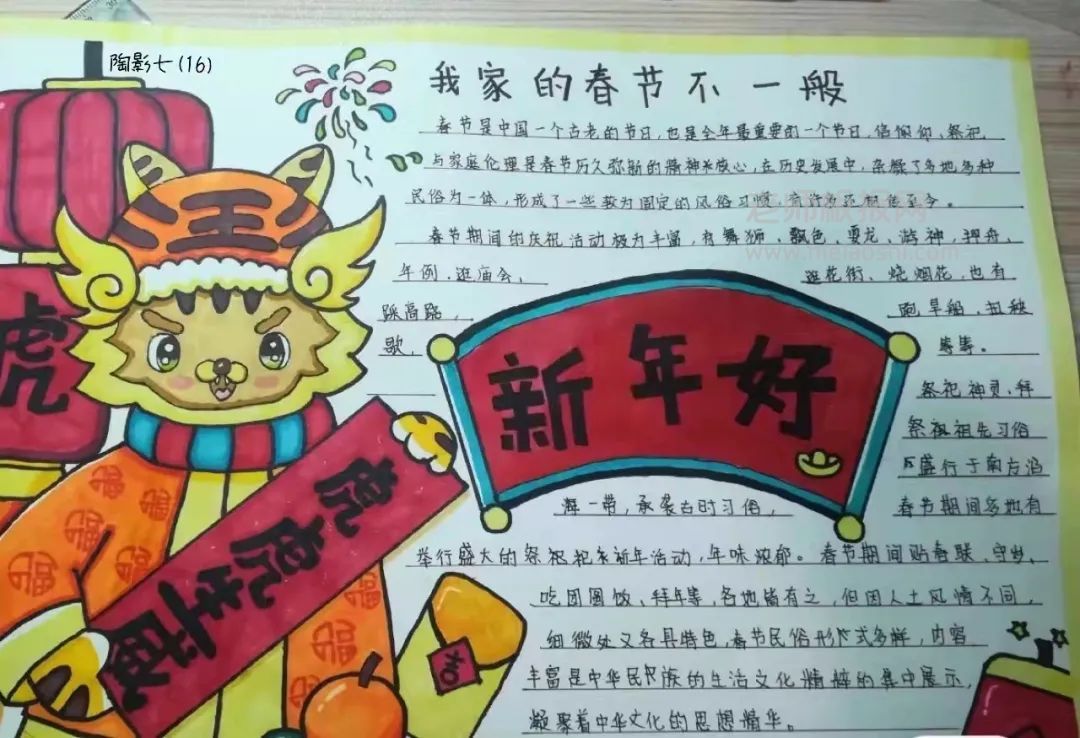 陶影七(16)
我家的春节不一般
春节是中国一个古老的节日,也是全年最重要的一个节日,信仰仰、祭祀
与家庭伦理是春节历久弥新的精神核心,在历史发展中,杂糅了多地多种
民俗为一体,形成了一些较为固定的风俗习惯,
春节期间的庆祝活动极为丰富,有舞狮、飘色、耍龙、游神、押舟、
年例、逛庙会、 逛花街、烧烟花,也有
踩高跷, 跑旱船,扭秧
歌, 等等。
祭祀神灵、拜
祭祖祖先习俗
盛行于南方沿
海一带,承袭古时习俗, 春节期间多地有
举行盛大的祭祝新年活动,年味浓郁。春节期间贴春联、守岁、
吃团圆饭、拜年等,各地皆有之,但因人土风情不同,
细微处又各具特色,春节民俗形式多样,内容
丰富是中华民族的生活文化精粹的集中展示,
凝聚着中华文化的思想精华。
王
虎
新年好
虎虎生威
老师板报网
www.meiaoshi.com